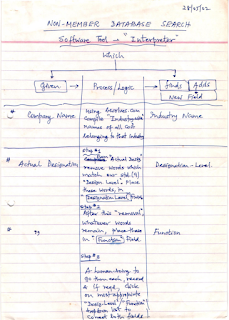 28/05/02
NON-MEMBER DATABASE SEARCH
Software Tool → "Interpreter"
Which
Given
Process/Logic
Finds
Adds
New Field
* Company Name
Using
Compile "Industrywise"
Names of all Cos
belonging to that Industry
Industry Name
* Actual Designation
Step #1
From "Actual Desig"
remove words which
match our std (9)
"Design Level". Place
these words, in
Designation Level
Designation-Level
* "
Step #2
After this "removal",
whatever words
remain, place these
in "Function" field.
Function
Step #3
A human-being to
go thru each, record
& if reqd, click
on most-appropriate
"Desig-Level" / "Function"